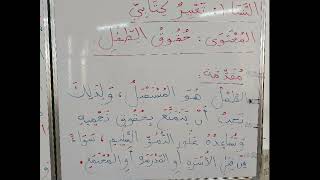 النَّشَاطُ: تَعْبِيرٌ كِتَابِيٌّ
المُحْتَوَى: حُقُوقُ الطِّفْلِ
مُقَدِّمَة:
الطِّفْلُ هُوَ المُسْتَقْبَلُ، وَلِذَلِكَ
يَجِبُ أَنْ يَتَمَتَّعَ بِحُقُوقٍ تَحْمِيهِ
وَتُسَاعِدُهُ عَلَى النُّمُوِّ السَّلِيمِ، سَوَاءً
مِنْ قِبَلِ الأُسْرَةِ أَوِ المَدْرَسَةِ أَوِ المُجْتَمَعِ.